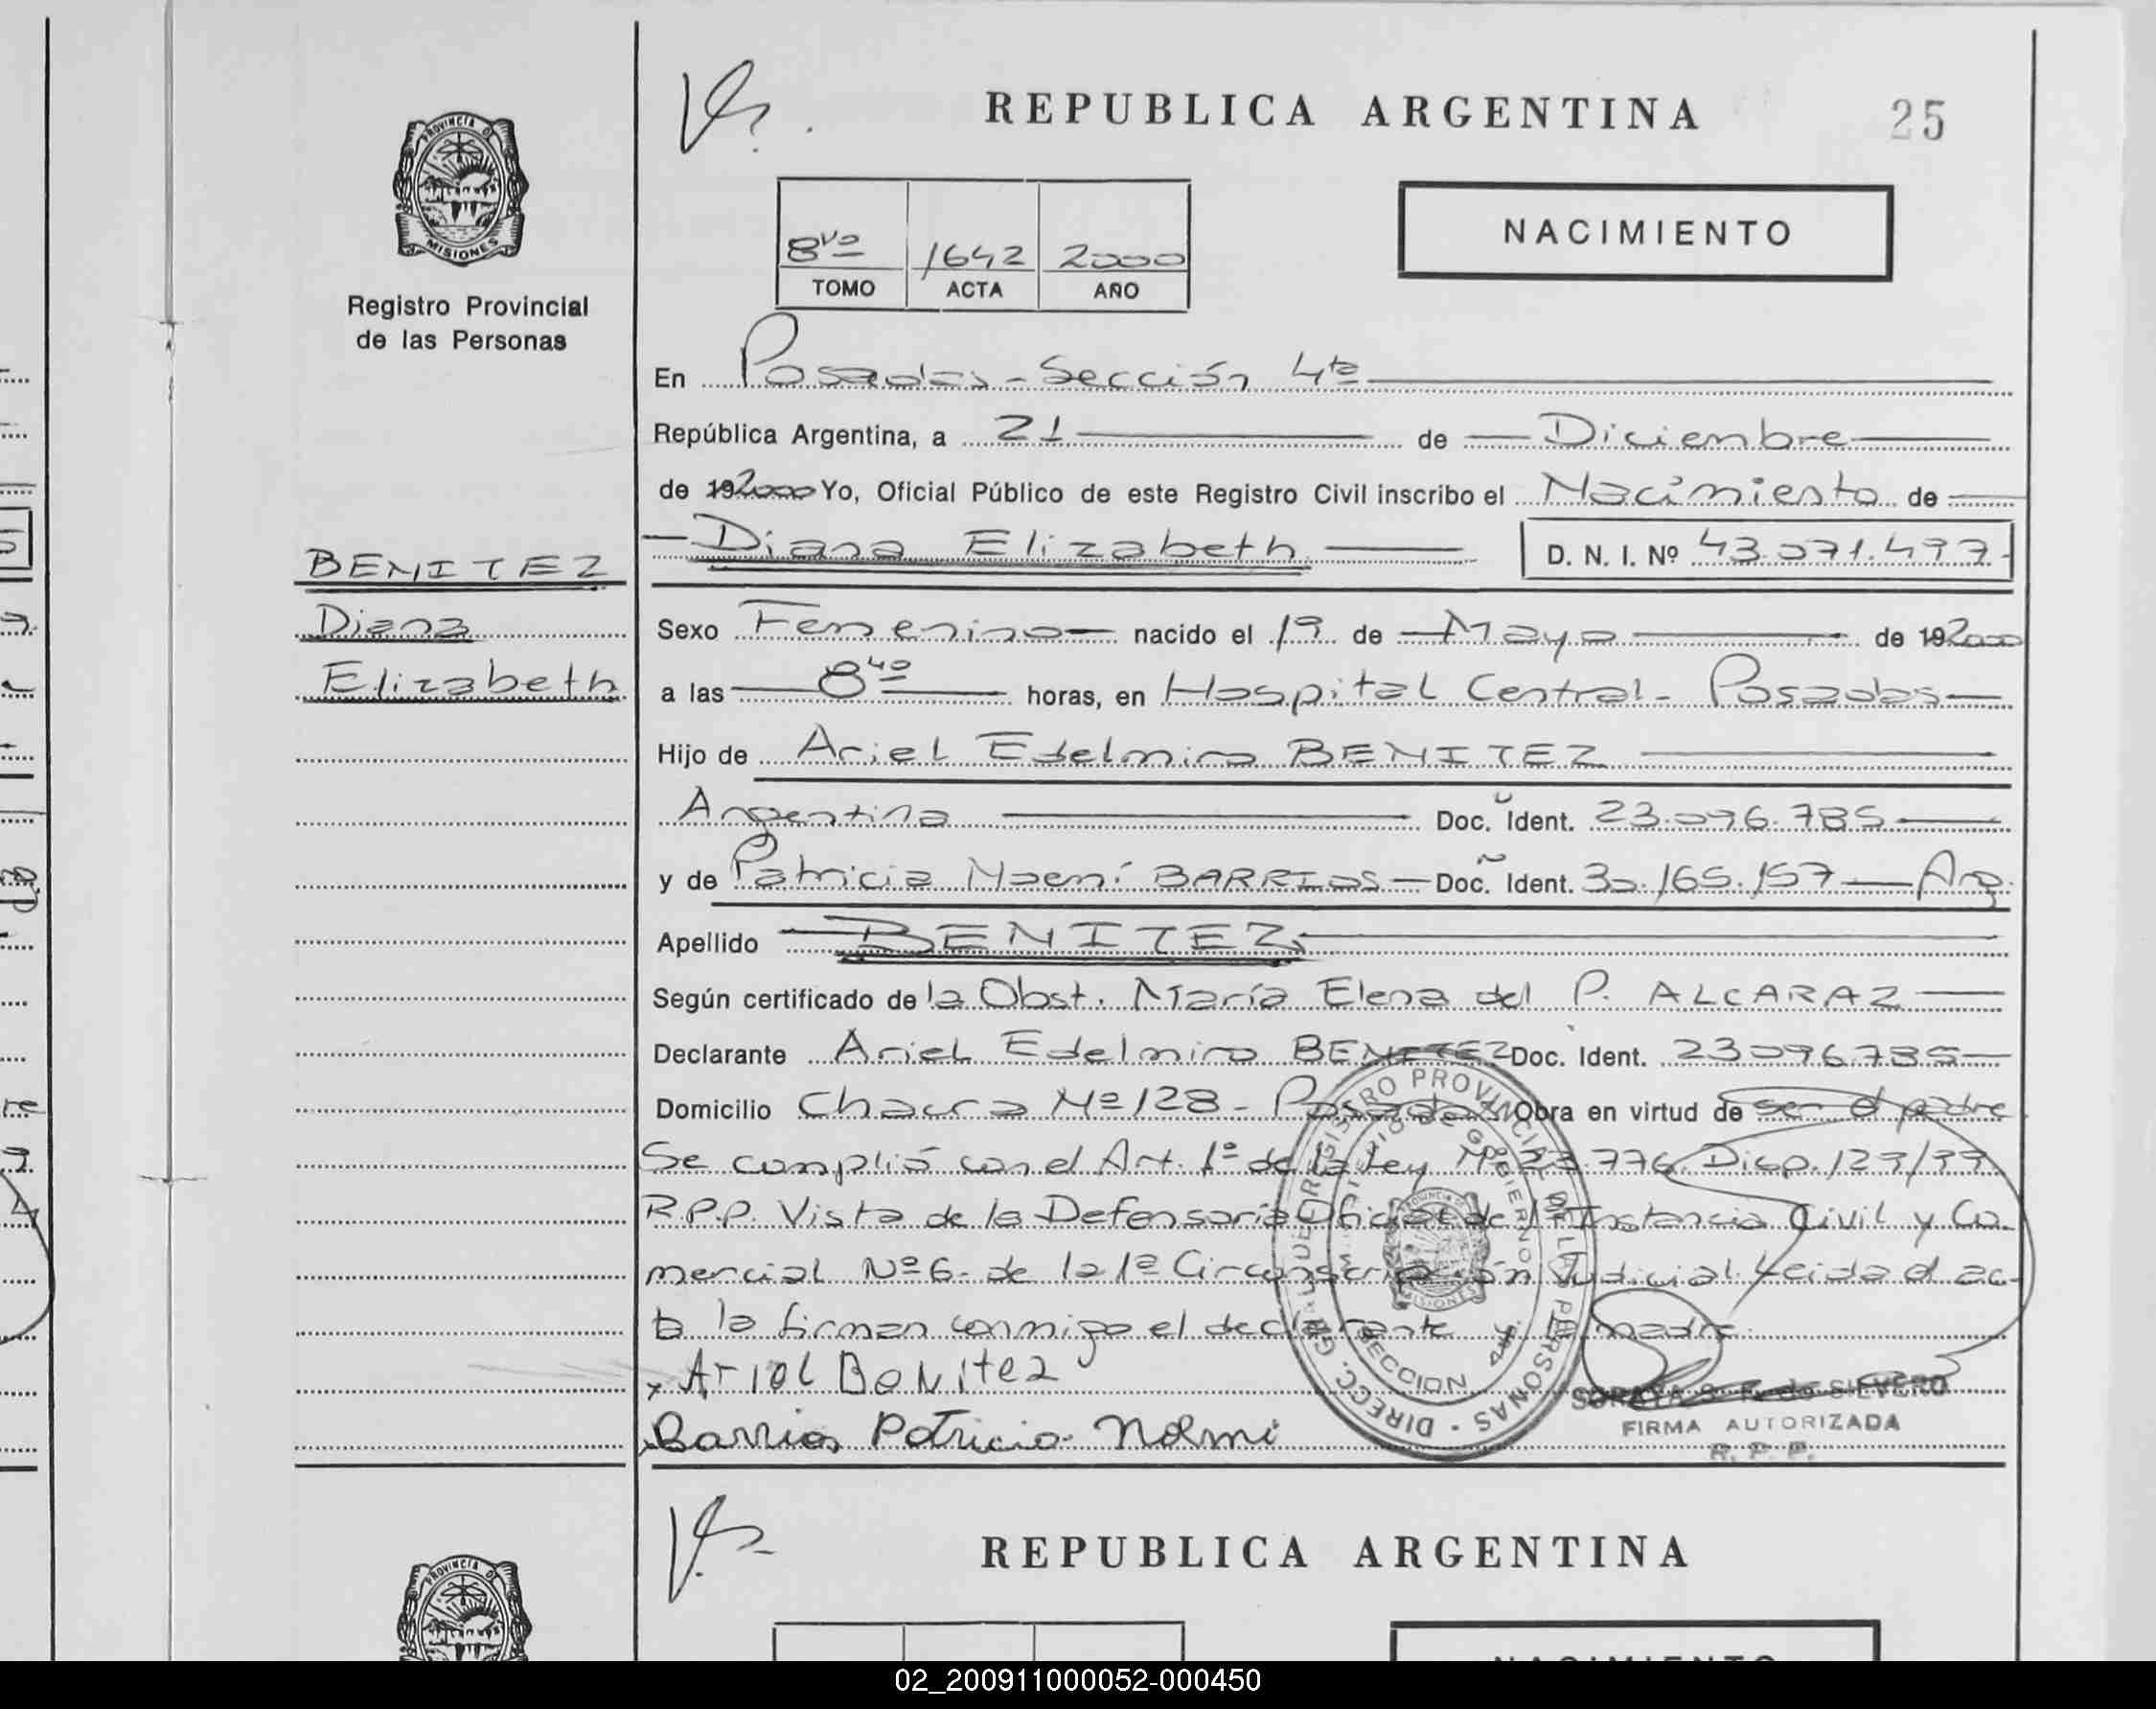 REPUBLICA ARGENTINA
25
PROVINCIA DE
MISIONES
Registro Provincial
de las Personas
8vo 1642 2000
TOMO ACTA AÑO
NACIMIENTO
En Posadas - Sección 4ta
República Argentina, a 21 de Diciembre
de 192000 Yo, Oficial Público de este Registro Civil inscribo el Nacimiento de
Diana Elizabeth D. N. I. Nº 43.071.497
BENITEZ
Diana
Elizabeth
Sexo Femenino nacido el 19 de Mayo de 192000
a las 8 40 horas, en Hospital Central - Posadas
Hijo de Ariel Edelmiro BENITEZ
Argentina Doc. Ident. 23.096.785
y de Patricia Noemí BARRIOS Doc. Ident. 30.165.157 Arg.
Apellido BENITEZ
Según certificado de la Obst. María Elena del P. ALCARAZ
Declarante Ariel Edelmiro BENITEZ Doc. Ident. 23096785
Domicilio Chacra Nº 128 - Posadas Obra en virtud de ser el padre
Se cumplió con el Art. 1º de la Ley Nº 23.776. Disp. 129/99
R.P.P. Vista de la Defensoría Oficial de 1ª Instancia Civil y Co
mercial Nº 6 - de la 1ª Circunscripción Judicial. Leida el ac-
ta la firman conmigo el declarante y madre.
x Ariel Benitez
x Barrios Patricia Noemi
DIRECC. GRAL. DE REGISTRO PROVINCIAL DE LAS PERSONAS
GOBIERNO
SECCION 4ta
FIRMA AUTORIZADA
R. P. P.
REPUBLICA ARGENTINA
PROVINCIA DE
NACIMIENTO
02_200911000052-000450